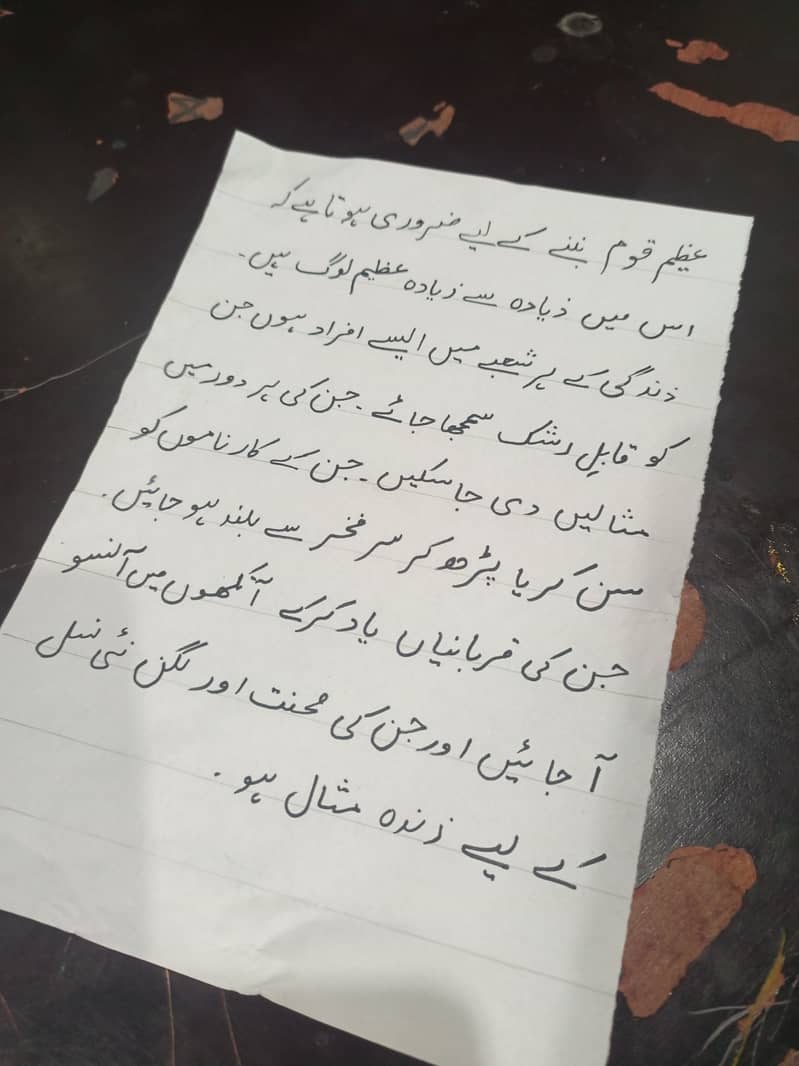 عظیم قوم بننے کے لیے ضروری ہوتا ہے کہ
اس میں زیادہ سے زیادہ عظیم لوگ ہیں۔
زندگی کے ہر شعبے میں ایسے افراد ہوں جن
کو قابلِ رشک سمجھا جائے۔ جن کی ہر دور میں
مثالیں دی جا سکیں۔ جن کے کارناموں کو
سن کر یا پڑھ کر سر فخر سے بلند ہو جائیں۔
جن کی قربانیاں یاد کرکے آنکھوں میں آنسو
آ جائیں اور جن کی محنت اور لگن نئی نسل
کے لیے زندہ مثال ہو۔